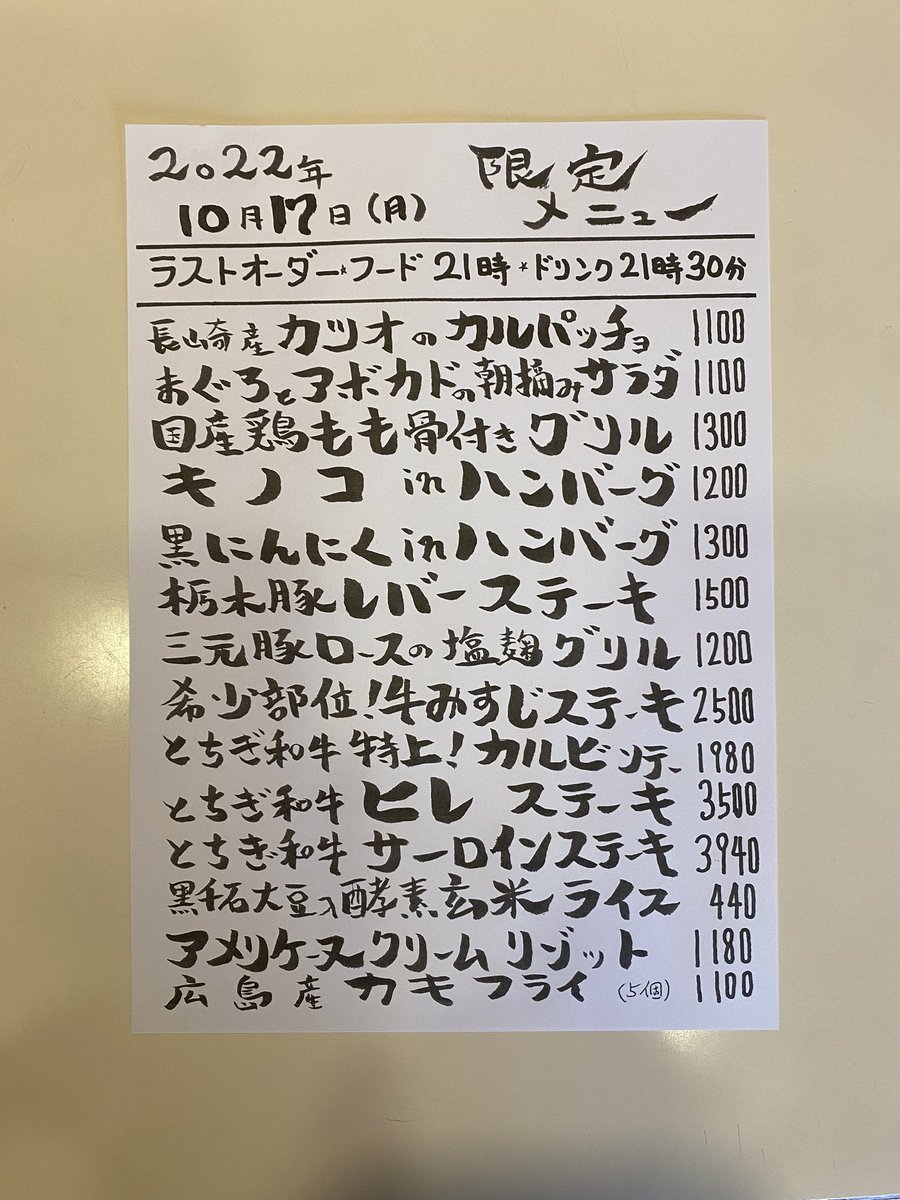 2022年 限定
10月17日(月) メニュー
ラストオーダー*フード 21時*ドリンク21時30分
長崎産 カツオのカルパッチョ 1100
まぐろとアボカドの朝摘みサラダ 1100
国産鶏もも骨付きグリル 1300
キノコ inハンバーグ 1200
黒にんにくinハンバーグ 1300
栃木豚レバーステーキ 1500
三元豚ロースの塩麹グリル 1200
希少部位!牛みすじステーキ 2500
とちぎ和牛特上!カルビステーキ 1980
とちぎ和牛 ヒレ ステーキ 3500
とちぎ和牛 サーロインステーキ 3940
黒千石大豆入酵素玄米ライス 440
アメリケーヌクリームリゾット 1180
広島産 カキフライ (5個) 1100